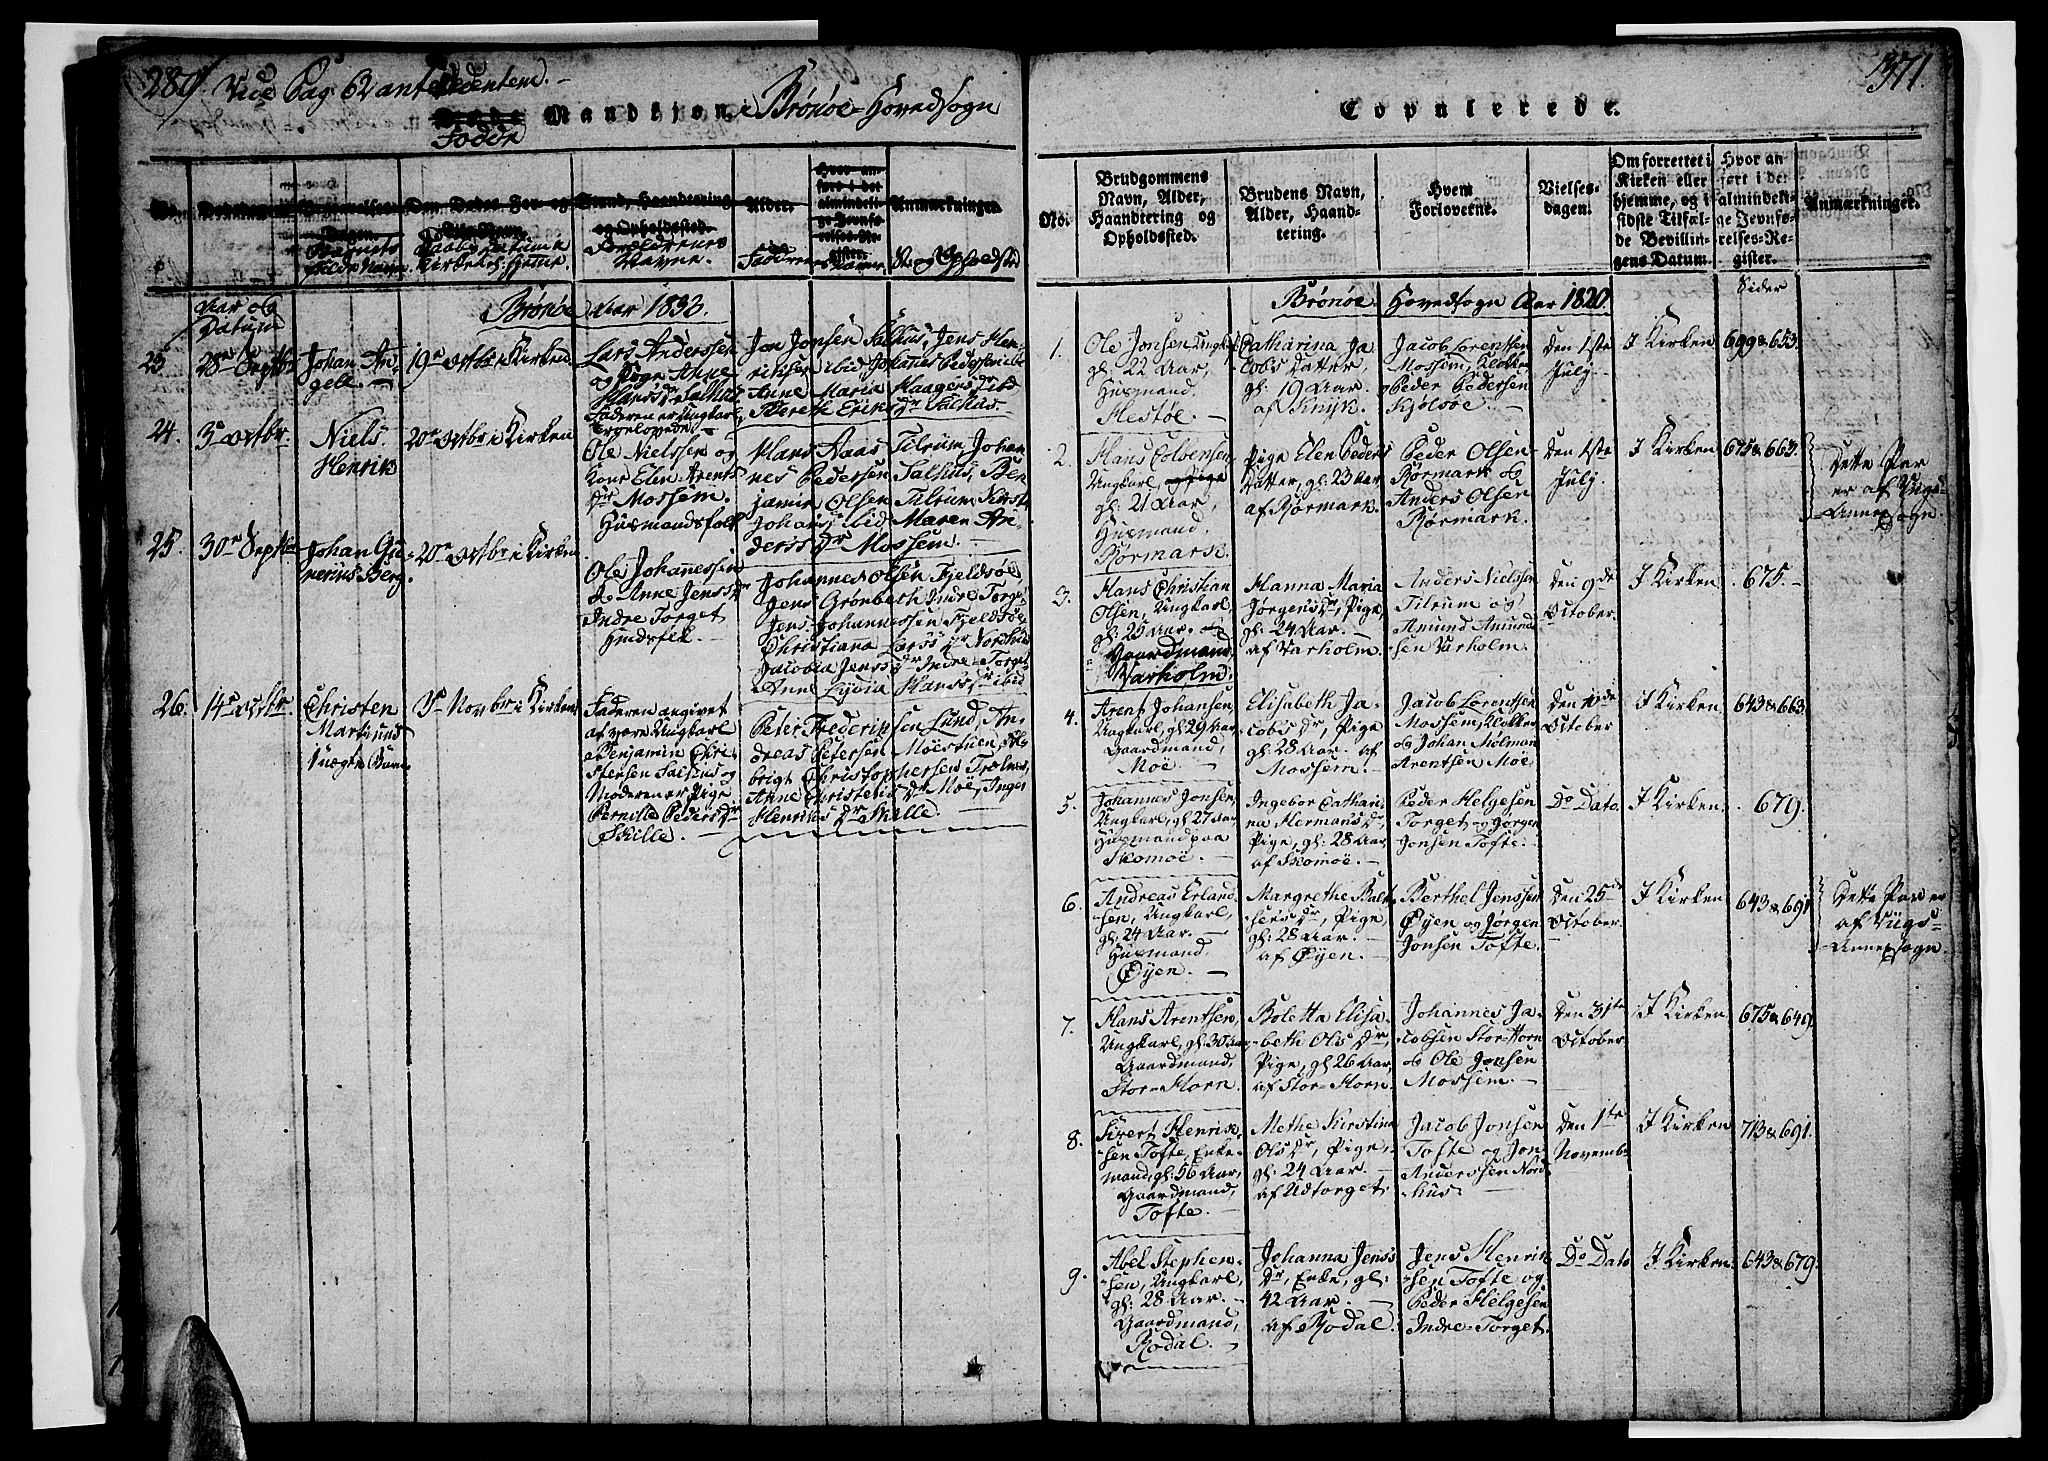 280. Vide Pag. 62 antecedentem.
Døde Mandkjøn. i Brönöe Hovedsogn
Födde
Den Dødes For- og
Stand, Haandtering
og Opholdssted.
Alder.
Hvor an-
ført i det
almindeli-
ge Jevnfø-
relses-Re-
gister.
Anmærkninger.
Navne.
Aar og
Datum
Brönöe Aar 1833.
23.
28de Septbr
Johan An-
gell.
19de Octbr i Kirken
Lars Anderssen
og Pige Anne
Hans Dr Salhus
Faderen er Ungkarl,
Jon Jonsen Salhus, Jens Hen-
richsen ibid Johannes Pedersen ibid
Anne Maria Haagens Dr ibid
Mereth Eriks Dr Salhus.
24.
3de Octbr.
Niels
Henrik
20de Octbr i Kirken
Ole Nielssen og
Kone Elen Arents
Dr Mossem.
Husmandsfolk
Hans Aas Tilrum, Johan-
nes Pedersen Salhus, Ben-
jamin Olsen Tilrum, Kirst.
Johans. ibid Maren An-
derss Dr Mossem.
25.
30te Septbr
Johan Gu-
nerius Berg
20de Octbr i Kirken
Ole Johanessen
& Anne Jenss Dr
Indre Torget
Johannes Olsen Fjeldsöe
Jens Grönbech Indre Torget
Jens Johannessen Fjeldsöe
Christianna Larss Dr Nordhuus
Jacobia Jenss Dr Indre Torget
Anne Lydia Hanss Dr ibid
26.
14de Octbr.
Christen
Martinus
uægte Barn
3de Novbr i Kirken
Faderen angivet
at være Ungkarl
Benjamin Chri-
stensen Salhus og
Moderen er Pige
Pernille Peders Dr
Skille.
Peter Frederiksen Lund, An-
dreas Petersen Moestuen, Al-
brigt Christophersen Trælnes,
Anne Christens Dr Moe, Inger
Henriks Dr Skille.
371.
Copulerede.
No.
Brudgommens
Navn, Alder,
Haandtering og
Opholdssted.
Brudens Navn,
Alder, Haand-
tering.
Hvem
Forloverne.
Vielses-
dagen.
Om forrettet i
Kirken eller
hjemme, og i
sidste Tilfæl-
de Bevillin-
gens Datum
Hvor an-
ført i det
almindeli-
ge Jevnfø-
relses-Re-
gister.
Anmærkninger.
Sider
Brönöe Hovedsogn Aar 1820.
1.
Ole Jonsen Ungkarl
gl: 22 Aar,
Husmand,
Hestöe.
Catharina Ja-
cobs Datter,
gl: 19 Aar
af Knyk.
Jacob Lorentsen
Mossem, Klokker
og Peder Pedersen
Kjölsöe.
Den 1ste
July.
I Kirken
699 & 653.
2.
Hans Colbensen
Ungkarl, og Pige
gl: 21 Aar,
Husmand,
Rörmark.
Pige Elen Peders
Datter, gl: 23 Aar
af Rörmark.
Peder Olsen
Rörmark &
Anders Olsen
Rörmark.
Den 1ste
July.
I Kirken
675 & 663.
Dette Par
er af Vigs-
Annexsogn.
3.
Hans Christian
Olsen, Ungkarl,
gl: 25 Aar,
Gaardmand,
Varholm.
Hanna Maria
Jörgens Dr, Pige,
gl: 24 Aar.
af Varholm.
Anders Nielssen
Tilrum og
Amund Amund-
sen Varholm.
Den 9de
October.
I Kirken
675.
4.
Arent Johansen,
Ungkarl, gl: 29 Aar,
Gaardmand,
Moe.
Elisabeth Ja-
cobs Dr, Pige
gl: 28 Aar. af
Mossem.
Jacob Lorentsen
Mossem, Klokker
& Johan Molman
Arentsen Moe
Den 10de
October
I Kirken
643 & 663.
5.
Johannes Jonsen,
Ungkarl, gl: 27 Aar,
Husmand paa
Skomoe.
Ingebor Cathari-
na Hermans Dr,
Pige, gl: 28 Aar,
af Skomoe.
Peder Helgesen
Torget og Jörgen
Jonsen Tofte.
Do Dato.
I Kirken.
679.
6.
Andreas Erland-
sen, Ungkarl,
gl: 24 Aar.
Husmand,
Öyen.
Margrethe Balt-
sers Dr, Pige,
gl: 28 Aar.
af Öyen.
Berthel Jenssen
Öyen og Jörgen
Jonsen Tofte.
Den 25de
October.
I Kirken
643 & 691
Dette Par er
af Vigs-
Annexsogn.
7.
Hans Arentsen,
Ungkarl, gl: 30 Aar
Gaardmand,
Stor-Horn.
Boletta Elisa-
beth Ols Dr,
Pige, gl: 26 Aar,
af Stor-Horn.
Johannes Ja-
cobsen Stor-Horn
& Ole Jonsen
Mossem.
Den 31te
October
I Kirken
675 & 649.
8.
Sivert Henrik-
sen Tofte, Enke-
mand, gl: 56 Aar,
Gaardmand,
Tofte.
Methe Kirstina
Ols Dr, Pige,
gl: 24 Aar.
af Udtorget.
Jacob Jonsen
Tofte og Jon
Anderssen Nord-
hus.
Den 1te
Novembr
I Kirken
713 & 691.
9.
Abel Stephen-
sen, Ungkarl,
gl: 28 Aar.
Gaardmand,
Rodal.
Johanna Jens
Dr, Enke, gl:
42 Aar.
af Rodal.
Jens Henrik-
sen Tofte og
Peder Helgesen
Indre-Torget.
Do Dato
I Kirken.
643 & 679.